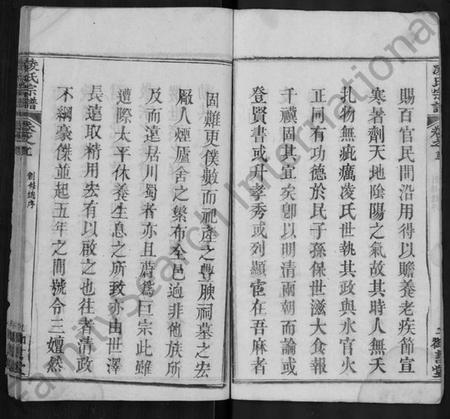 賜百官民間沿用得以贍養老疾節宣
寒暑劑天地陰陽之氣故其時人無夭
札物無疵癘凌氏世執其政與水官火
正同有功德於民子孫保世滋大食報
千禩固其宜矣卽以明淸兩朝而論或
登賢書或升孝秀或列顯宦在吾麻者
凌氏宗譜
卷之五
固難更僕數而祀產之豊腴祠墓之宏
厰人煙廬舍之槃布全邑過非他族所
及而遠居川蜀者亦且蔚爲巨宗此雖
遭際太平休養生息之所致亦由世澤
長遠取精用宏有以啟之也往者淸政
不綱豪傑並起五年之間號令三嬗然
凌氏宗譜
卷之五
FamilySearch International